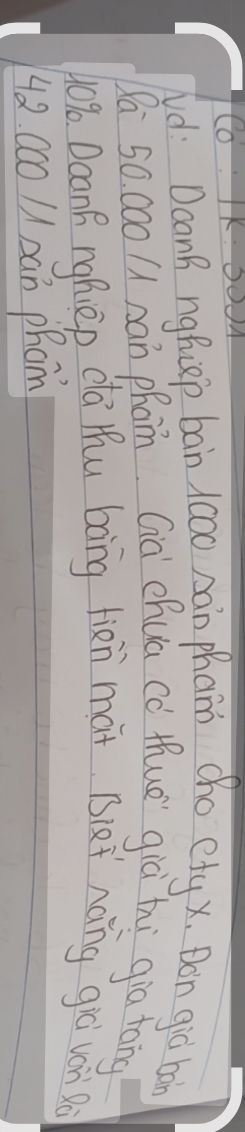 Có : TK : 3331
Vd : Doanh nghiệp bán 1000 sản phẩm cho cty X. Đơn giá bán
là 50.000 /1 sản phẩm. Giá chưa có thuế giá trị gia tăng
10%. Doanh nghiệp đã thu bằng tiền mặt. Biết rằng giá vốn là
42.000 /1 sản phẩm